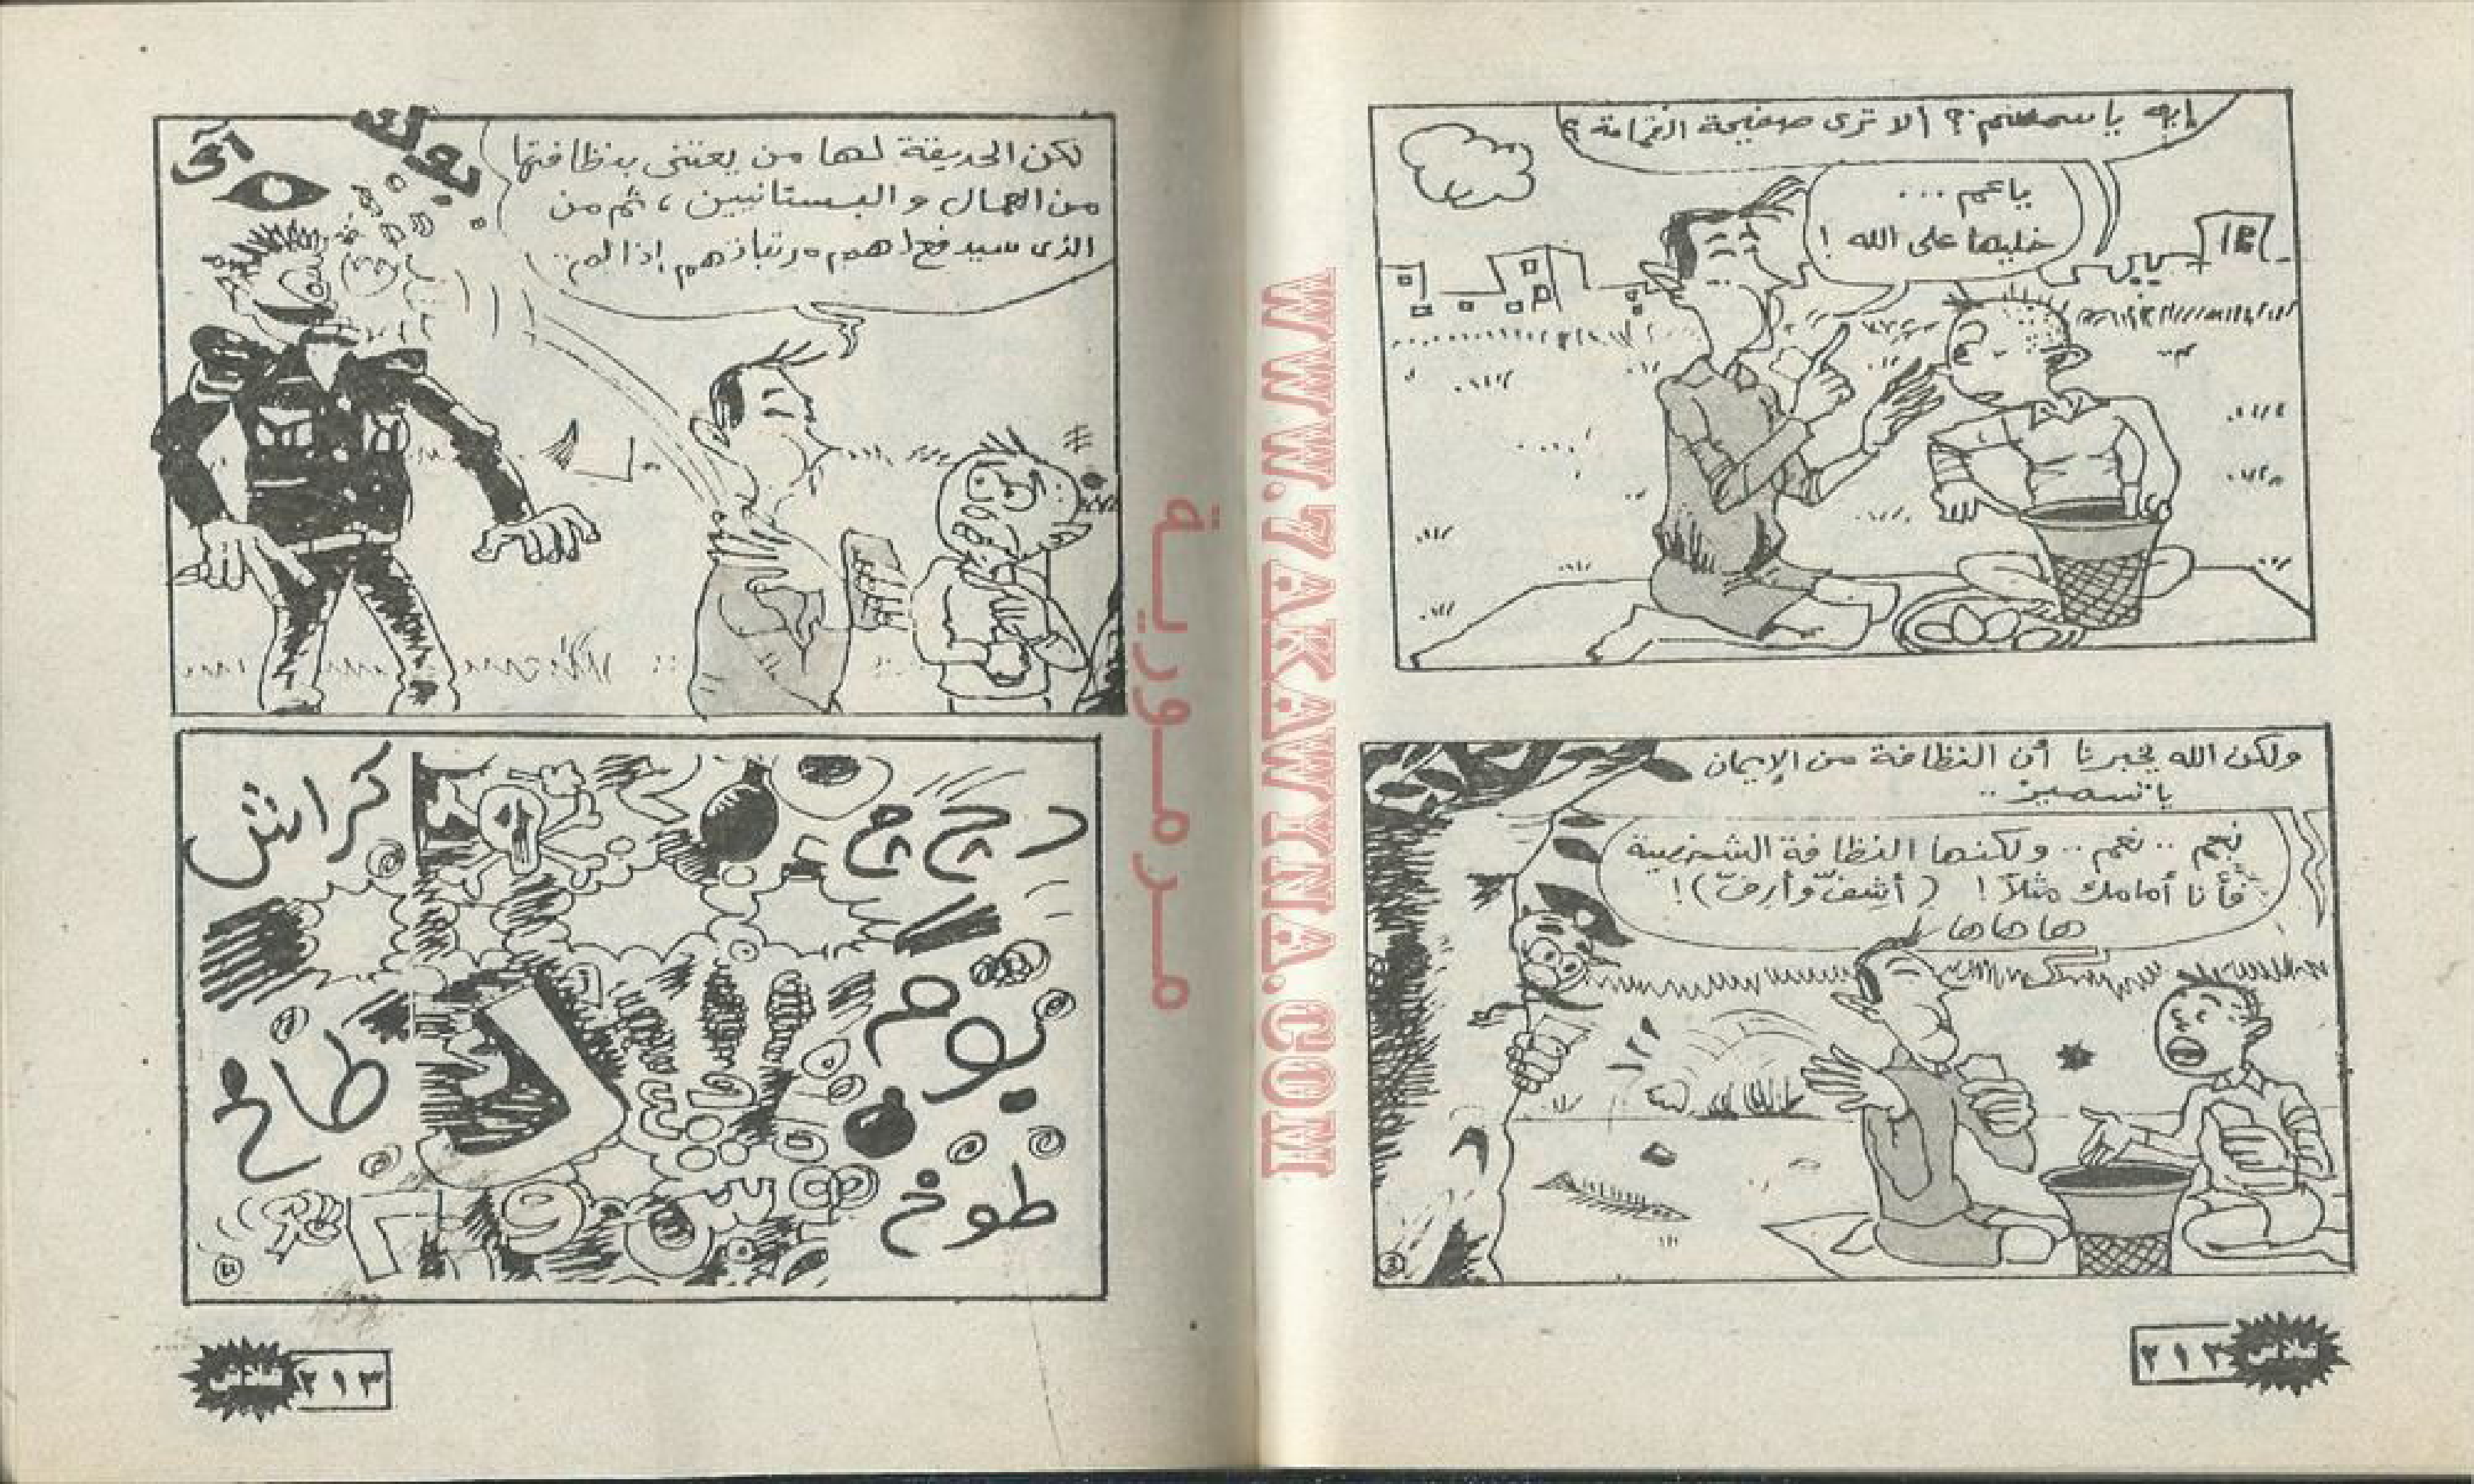 إيه يا سمسم؟ ألا ترى صفيحة القمامة؟
يا عم ...
خليها على الله !
ولكن الله يخبرنا أن النظافة من الإيمان
يا سمير ..
نعم .. نعم .. ولكنها النظافة الشخصية
فأنا أمامك مثلاً ! (أشفّ وأرفّ) !
ها ها ها
٢١٣
لكن الحديقة لها من يعتنى بنظافتها
من العمال و البستانيين ، ثم من
الذى سيدفع لهم مرتباتهم إذا لم ..
آى
كراش
بوم
طاخ
طوخ
٢١٣
WWW.7AKAWINA.COM